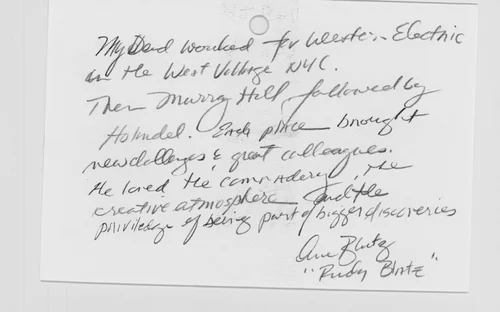 My Dad worked for Western Electric
in the West Village NYC.
Then Murray Hill, followed by
Holmdel. Each place brought
new challenges & great colleagues.
He loved the camradery, the
creative atmosphere and the
priviledge of being part of bigger discoveries
Ann Blutz
"Rudy Blutz"